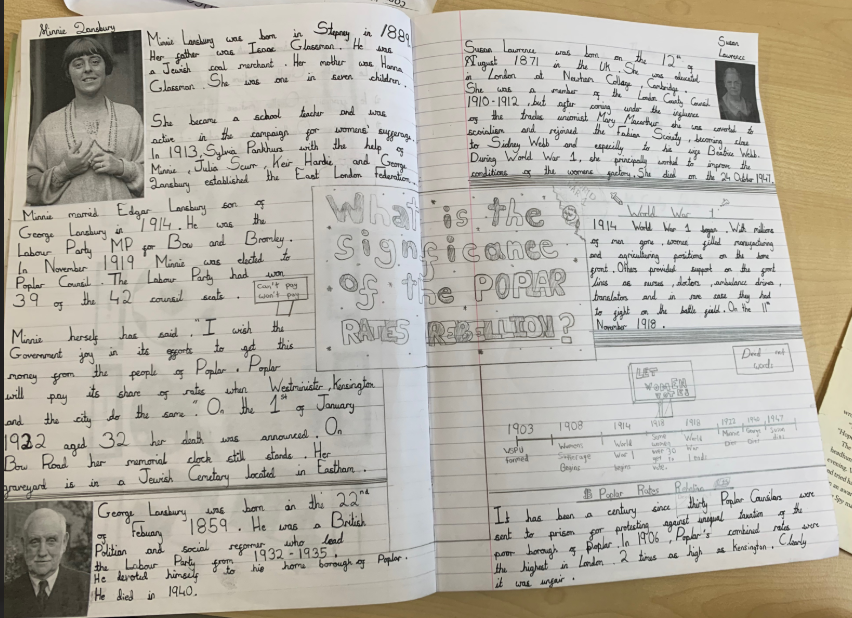 Minnie Lansbury
Minnie Lansbury was born in Stepney in 1889.
Her father was Isaac Glassman. He was
a Jewish coal merchant. Her mother was Hanna
Glassman. She was one in seven children.
She became a school teacher and was
active in the campaign for womens' sufferage.
In 1913, Sylvia Pankhurs with the help of
Minnie, Julia Scurr, Keir Hardie and George
Lansbury established the East London federation.
Minnie married Edgar Lansbury son of
George Lansbury in 1914. He was the
Labour Party MP for Bow and Bromley.
In November 1919 Minnie was elected to
Poplar Council. The Labour Party had won
39 of the 42 counsil seats.
Can't pay
won't pay
Minnie herself has said "I wish the
Government joy in its efforts to get this
money from the people of Poplar. Poplar
will pay its share of rates when Westminister, Kensington
and the city do the same". On the 1st of January
1922 aged 32 her death was announced. On
Bow Road her memorial clock still stands. Her
graveyard is in a Jewish Cemetary located in Eastham.
George Lansbury was born on the 22nd
of Febuary 1859. He was a British
Politian and social reformer who lead
the Labour Party from 1932-1935.
He devoted himself to his home borough of Poplar.
He died in 1940.
What is the
significance
of the POPLAR
RATES REBELLION?
Susan
Lawrence
Susan Lawrence was born on the 12th of
August 1871 in the UK. She was educated
in London at Newham Collage, Cambridge.
She was a member of the London County Council
1910-1912, but after coming under the influence
of the tradus unionist Mary Macarthur, she was converted to
scoialism and rejoined the Fabian Sciety, becoming close
to Sidney Webb and especially to his wife Beatrice Webb.
During World War 1, she principally worked to improve the
conditions of the womens factory. She died on the 24 October 1947.
World War 1
1914 World War 1 began. With millions
of men gone women filled manufacturing
and agriculturing positions on the home
front. Others provided support on the front
lines as nurses, doctors, ambulance drivers,
translators and in rare case they had
to fight on the battle field. On the 11th
November 1918.
Deed not
words
LET
WOMEN
VOTE!
1903 1908 1914 1918 1918 1922 1940 1947
WSPU
formed
Womens
Sufferage
Begins
World
War 1
begins
Some
women
over 30
get to
vote.
World
War
1 ends
Minnie
dies
George
dies
Susan
dies
Poplar Rates
It has been a century since thirty Poplar Counsilars were
sent to prison for protesting against unequal taxation of the
poor borough of Poplar. In 1906, Poplar's combined rates were
the highest in London. 2 times as high as Kensington. Clearly
it was unfair.